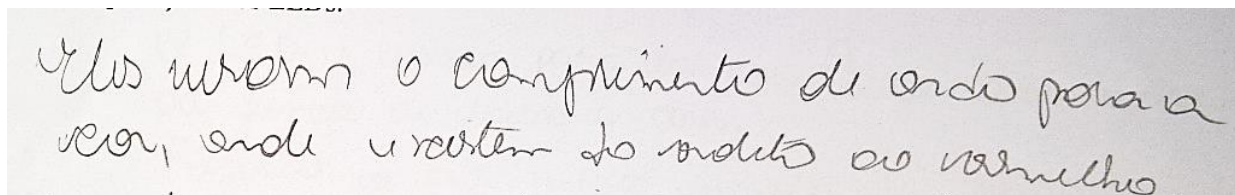 Eles usaram o comprimento de onda para a
cor, onde existem do violeta ao vermelho